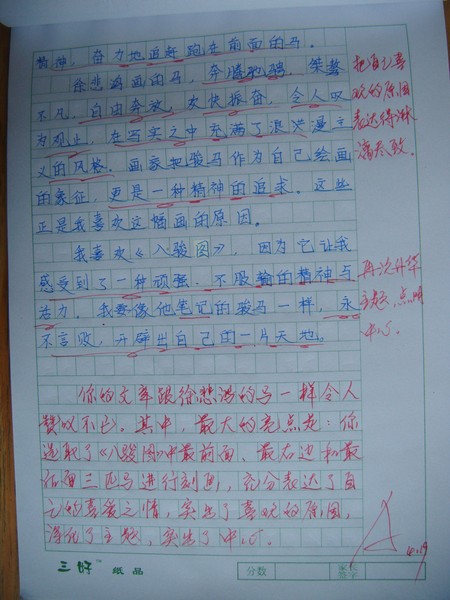 精神，奋力地追赶跑在前面的马。
徐悲鸿画的马，奔腾驰骋、桀骜
不凡，自由奔放，欢快振奋，令人叹
为观止，在写实之中充满了浪漫主
义的风格。画家把骏马作为自己绘画
的象征，更是一种精神的追求。这些
正是我喜欢这幅画的原因。
我喜欢《八骏图》，因为它让我
感受到了一种顽强、不服输的精神与
活力。我要像他笔记的骏马一样，永
不言败，开辟出自己的一片天地。
把自己喜
欢的原因
表达得淋
漓尽致。
再次升华
主题，点明
中心。
你的文章跟徐悲鸿的马一样令人
赞叹不已。其中，最大的亮点是：你
选取了《八骏图》中最前面、最右边和最
后面三匹马进行刻画，充分表达了自
己的喜爱之情，突出了喜欢的原因，
净化了主题，突出了中心。
A
4.19
三好™ 纸品
分数
家长
签字